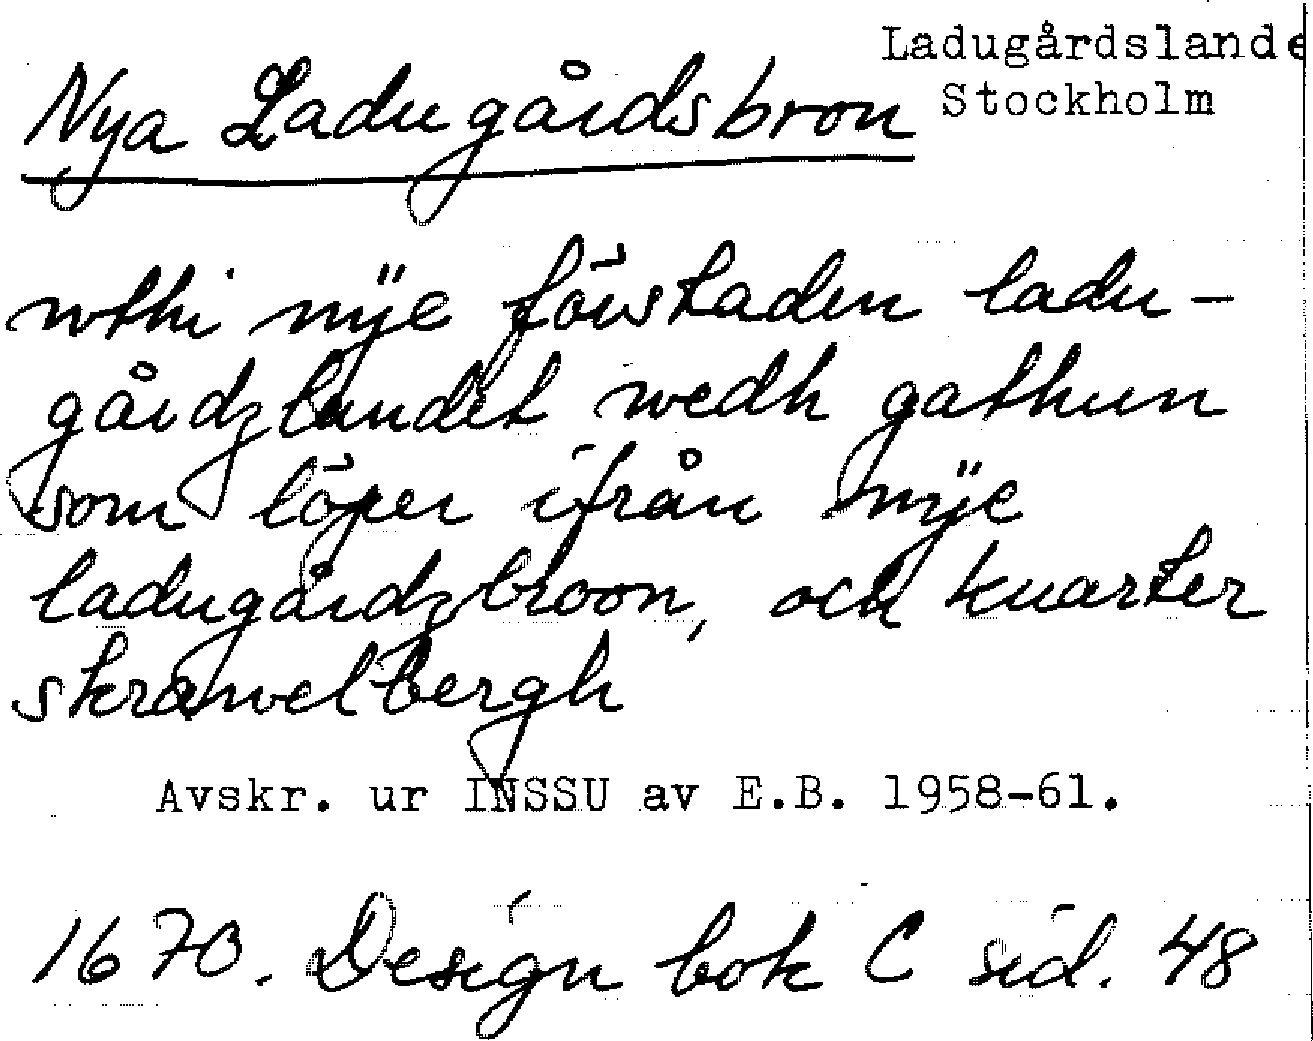 Ladugårdslande
Stockholm
Nya Ladugårdsbron
wthi nÿe förstaden ladu-
gårdzlandet wedh gathun
som löper ifrån nÿe
ladugårdzbroon, och kuarter
skrawelbergh
Avskr. ur INSSU av E.B. 1958-61.
1670. Design bok C sid. 48